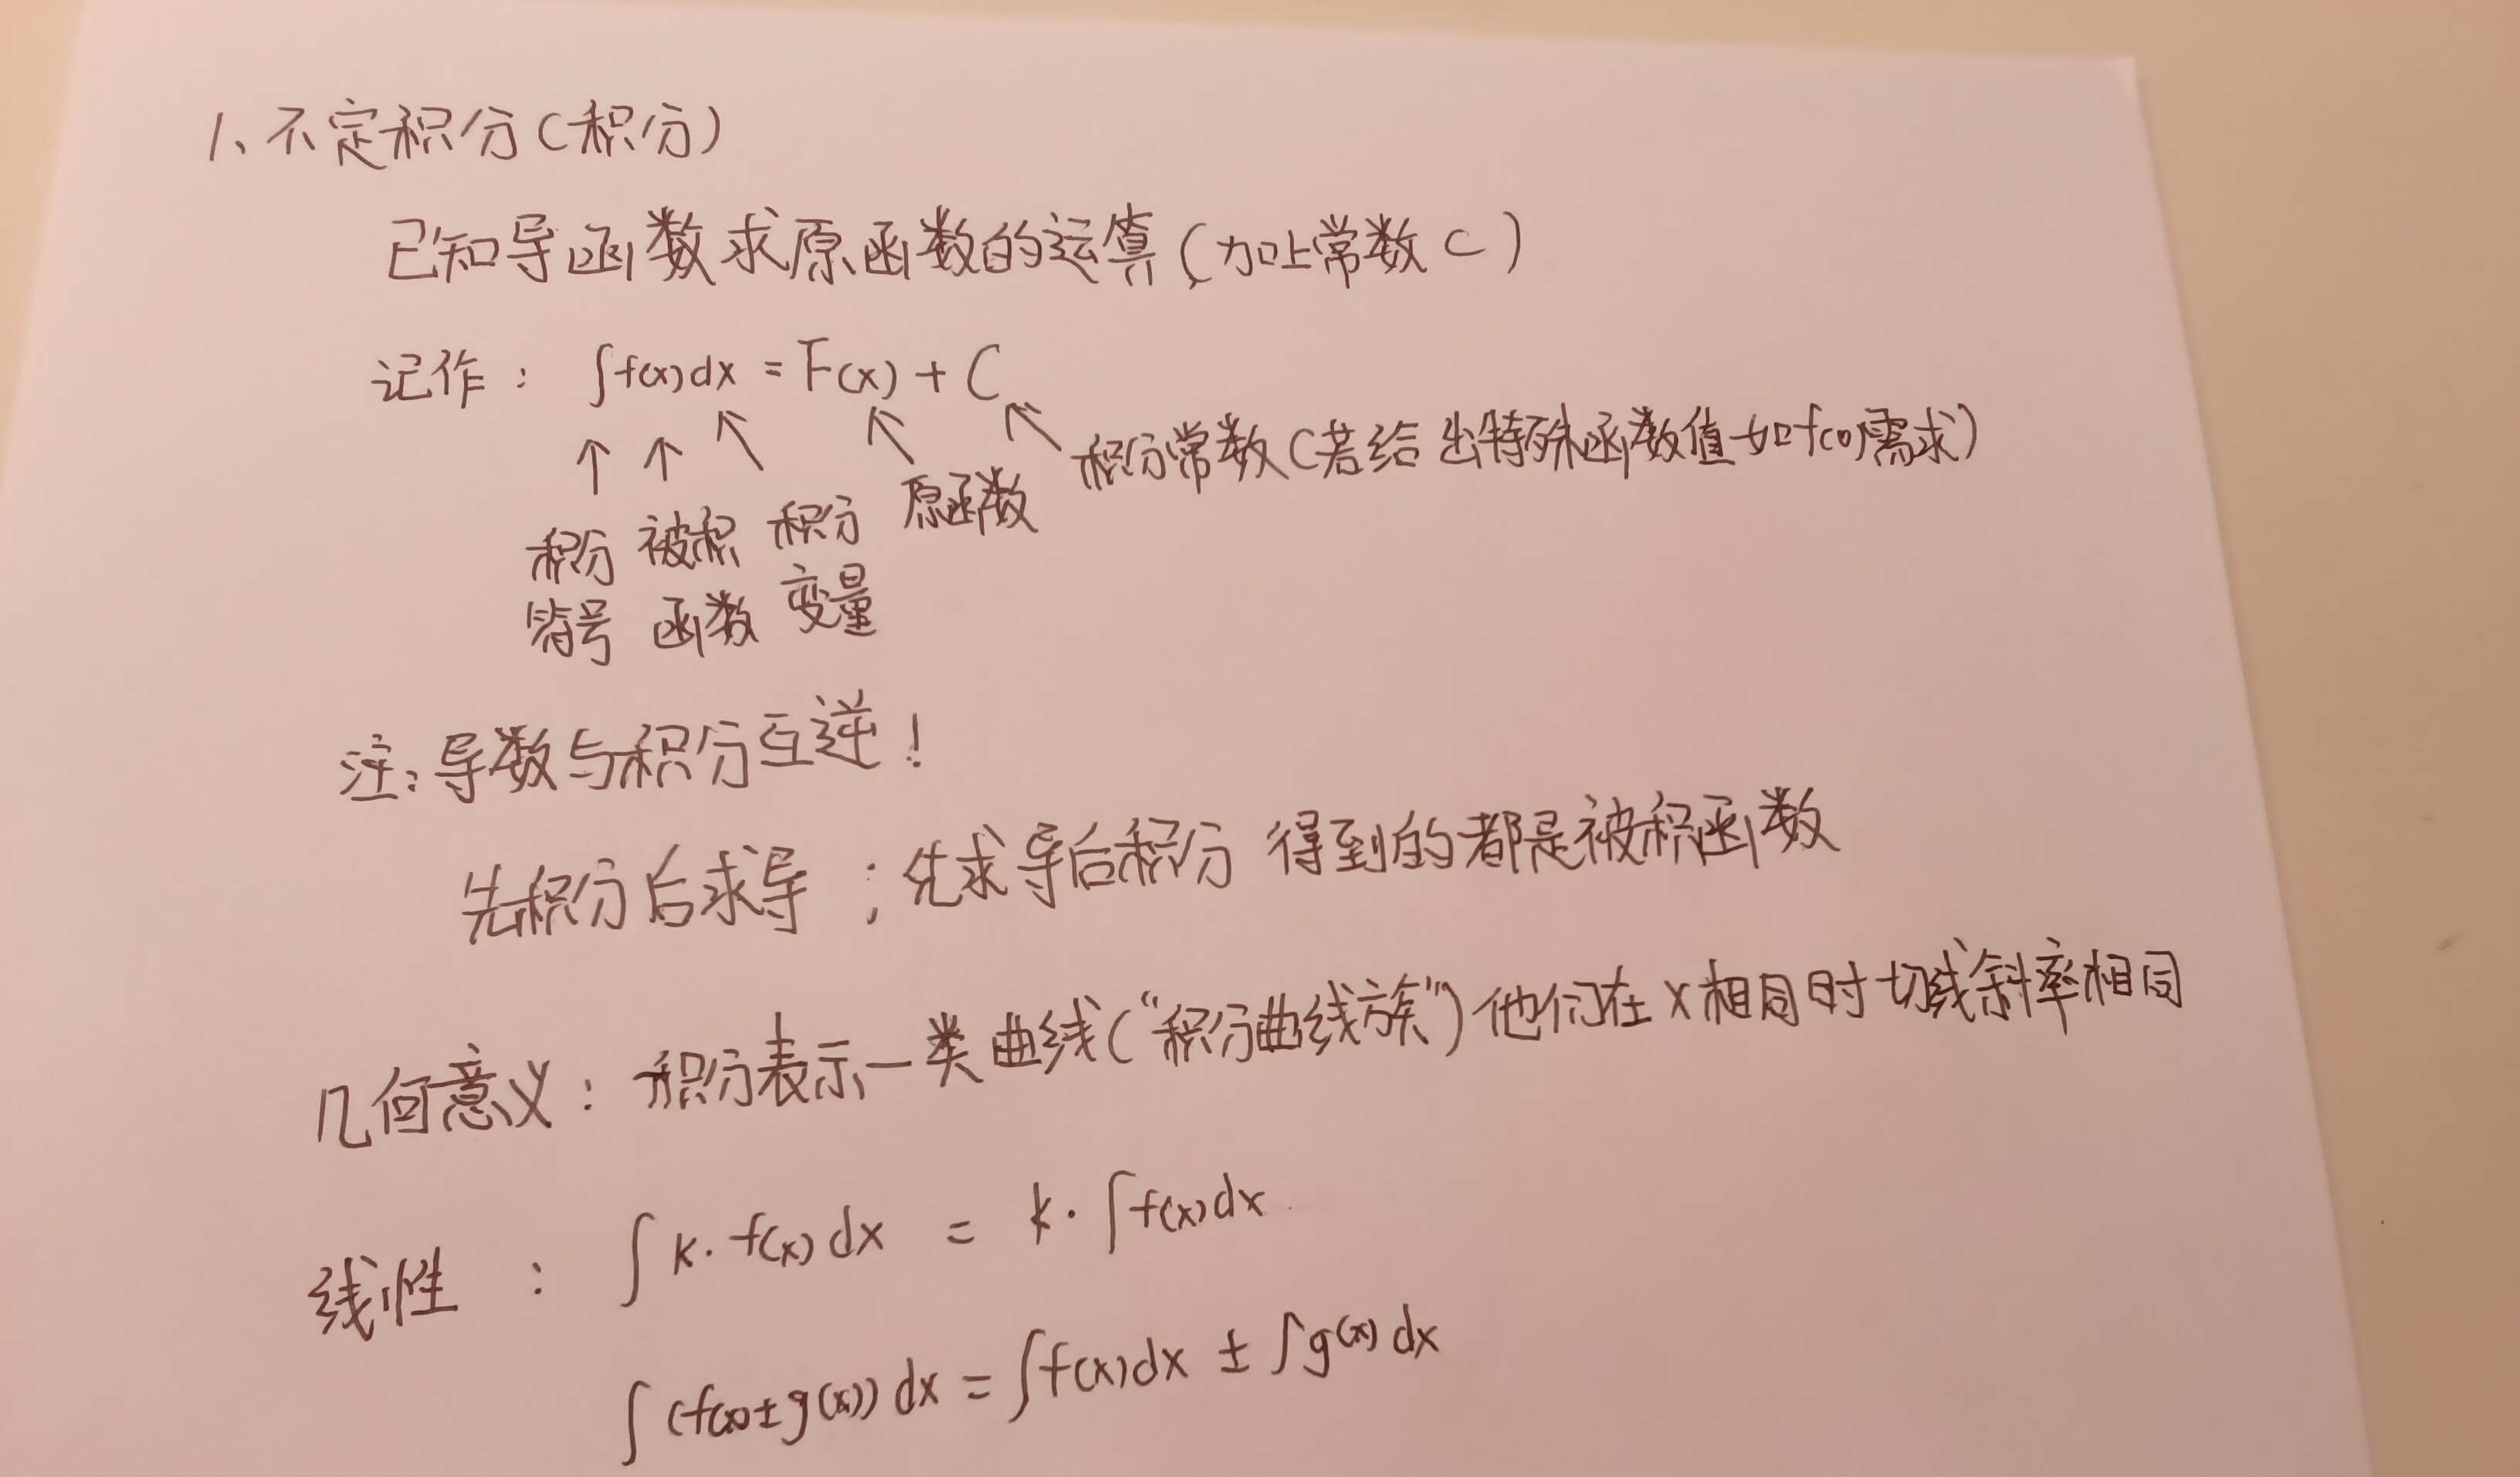 1、不定积分(积分)
已知导函数求原函数的运算(加上常数C)
记作: ∫f(x)dx = F(x) + C
↑ ↑ ↖ ↖ ↖ 积分常数(若给出特殊函数值如f(0)需求)
积分 被积 积分 原函数
符号 函数 变量
注:导数与积分互逆!
先积分后求导 ;先求导后积分 得到的都是被积函数
几何意义: 积分表示一类曲线(“积分曲线族”)他们在x相同时切线斜率相同
线性 : ∫k·f(x)dx = k·∫f(x)dx
∫(f(x)±g(x))dx = ∫f(x)dx ± ∫g(x)dx